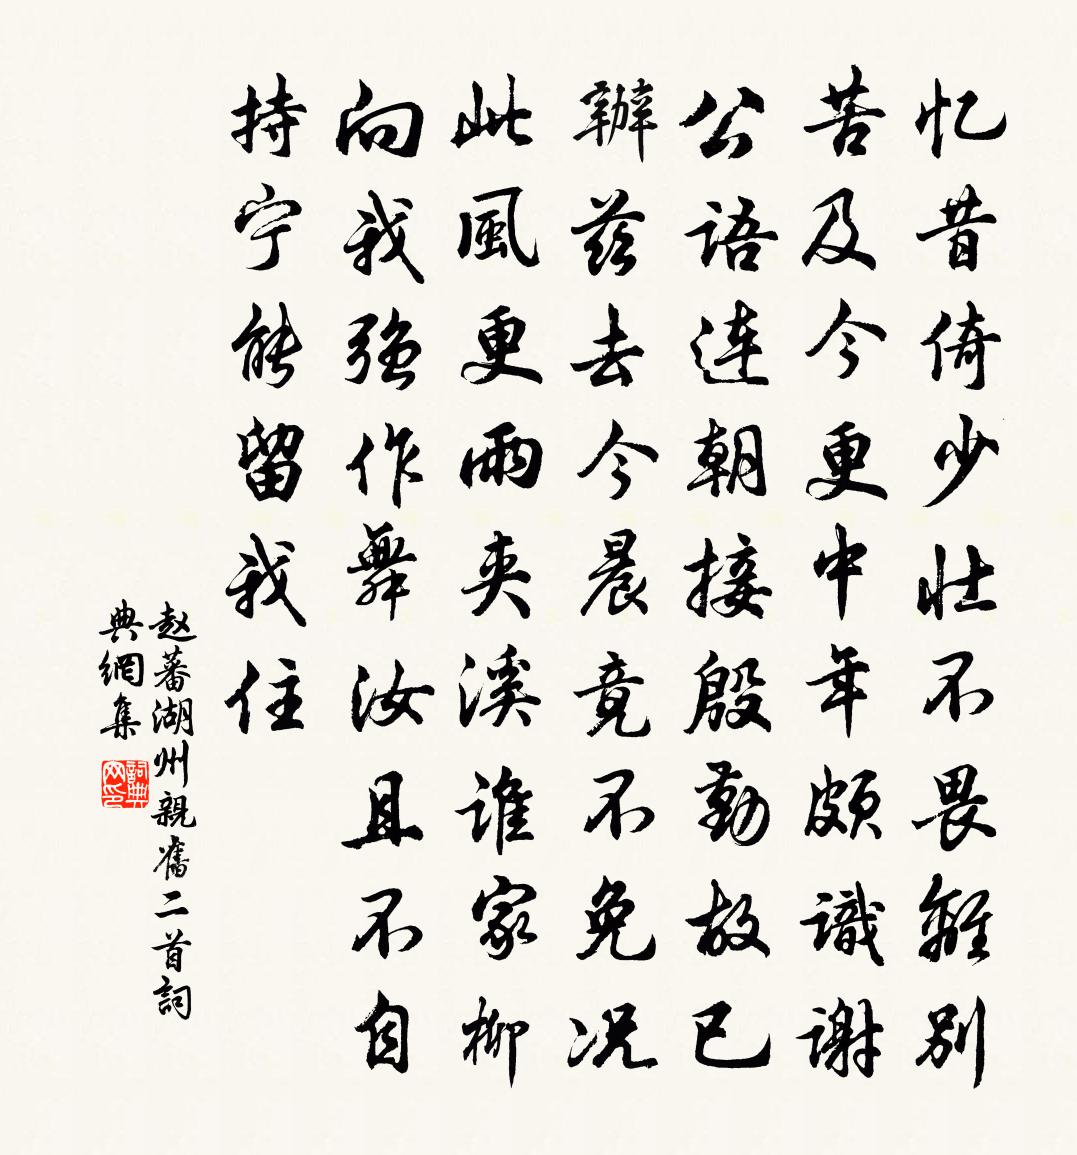 忆昔倚少壮不畏離别
苦及今更中年頗識谢
公語連朝接殷勤故已
辦兹去今晨竟不免况
此風更雨夹溪谁家柳
向我强作舞汝且不自
持宁能留我住
赵蕃湖州親舊二首詞
典網集
詞典
网印